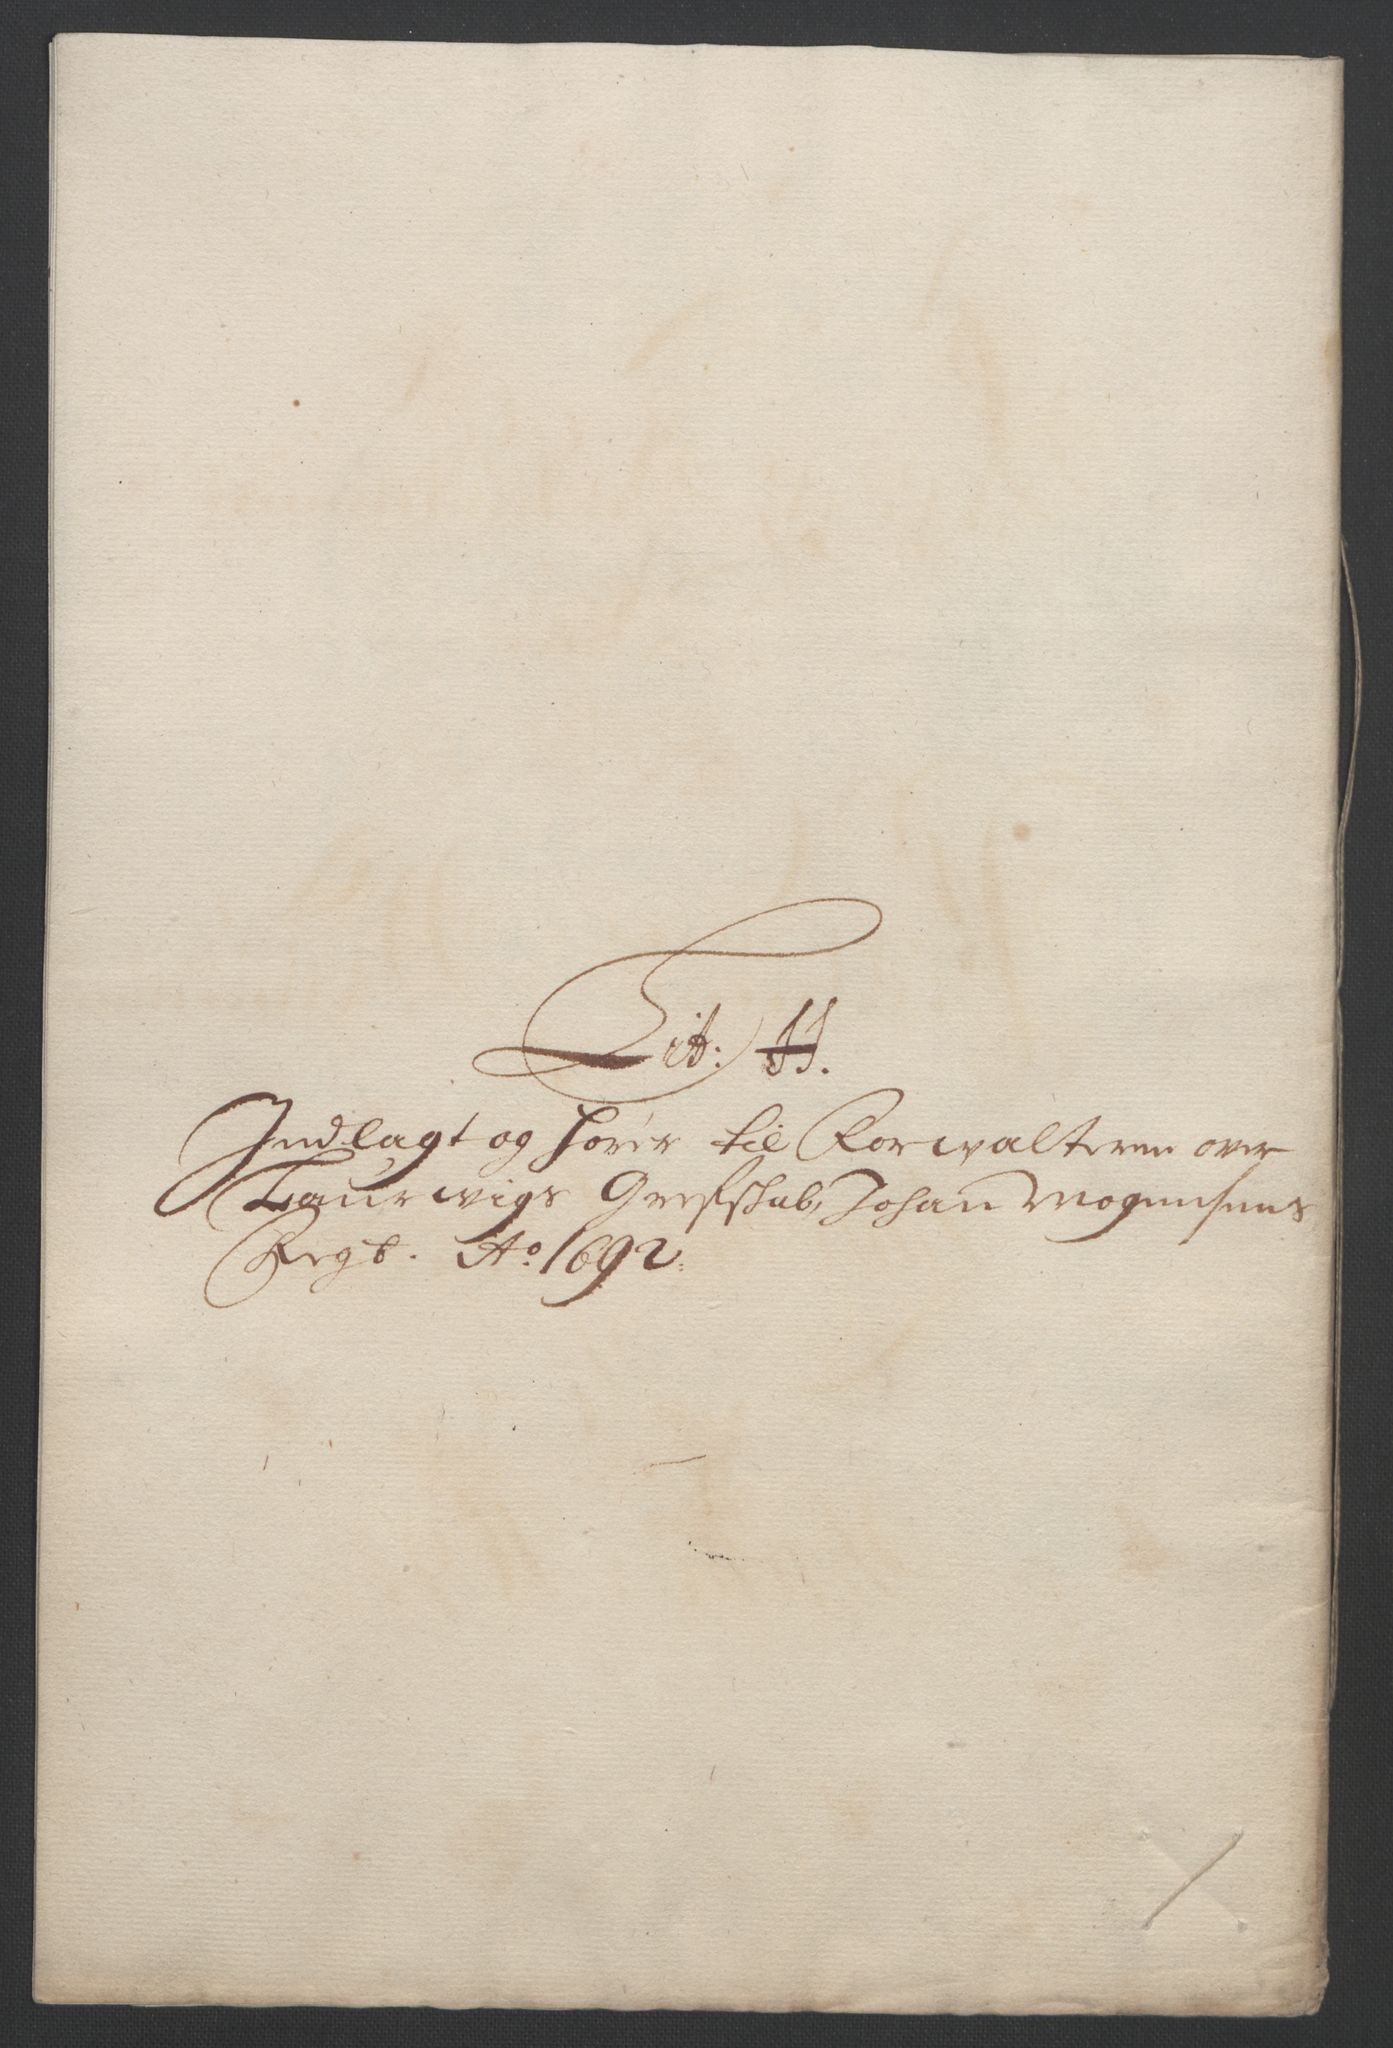 Lit: H.
Indlagt og hører til Forwalteren over
Laurwigs Grefskab, Johan Mogensens
Regb. Ao 1692.